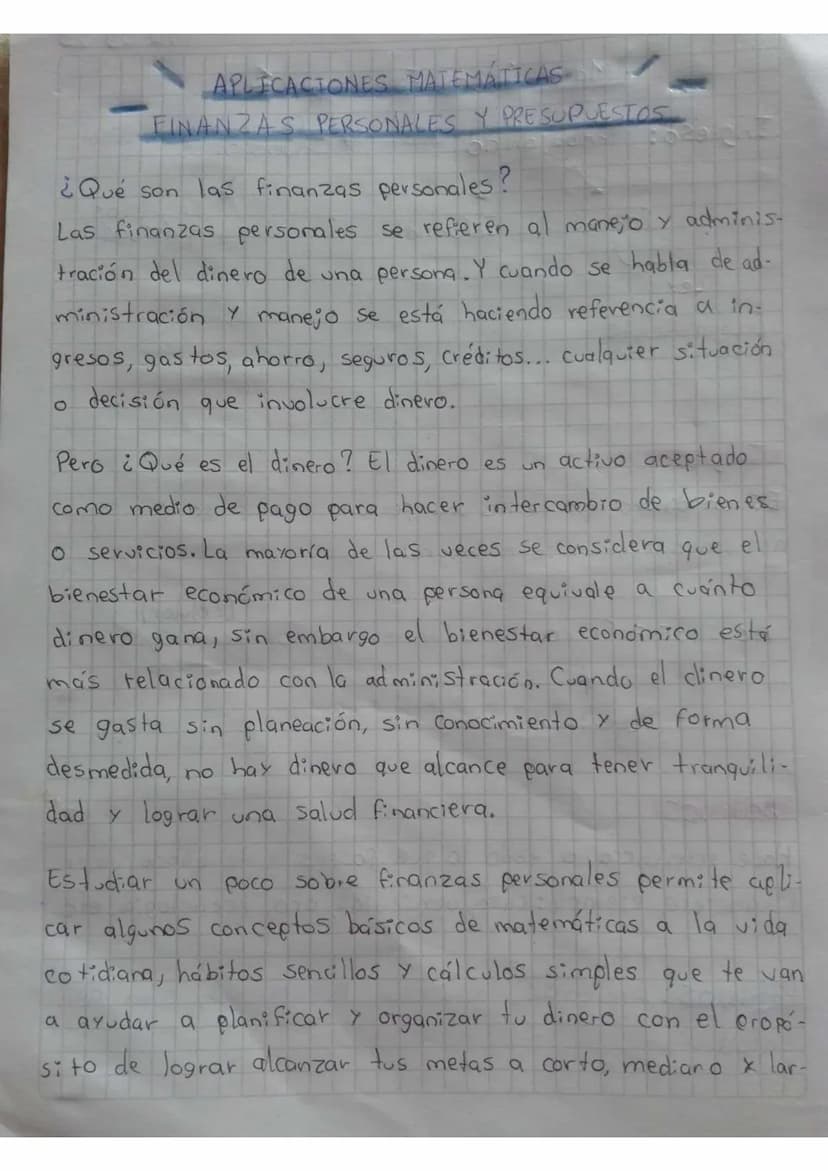 APLICACIONES MATEMÁTICAS
FINANZAS PERSONALES Y PRESUPUESTOS
¿Qué son las finanzas personales?
Las finanzas personales se refieren al manejo y adminis-
tración del dinero de una persona. Y cuando se habla de ad-
ministración y manejo se está haciendo referencia a in-
gresos, gastos, ahorro, seguros, créditos... cualquier situación
o decisión que involucre dinero.
Pero ¿Qué es el dinero? El dinero es un activo aceptado
como medio de pago para hacer intercambio de bienes
o servicios. La mayoría de las veces se considera que el
bienestar económico de una persona equivale a cuánto
dinero gana, sin embargo el bienestar económico está
más relacionado con la administración. Cuando el dinero
se gasta sin planeación, sin conocimiento y de forma
desmedida, no hay dinero que alcance para tener tranquili-
dad y lograr una salud financiera.
Estudiar un poco sobre finanzas personales permite apli-
car algunos conceptos básicos de matemáticas a la vida
cotidiana, hábitos sencillos y cálculos simples que te van
a ayudar a planificar y organizar tu dinero con el propó-
sito de lograr alcanzar tus metas a corto, mediano y lar-